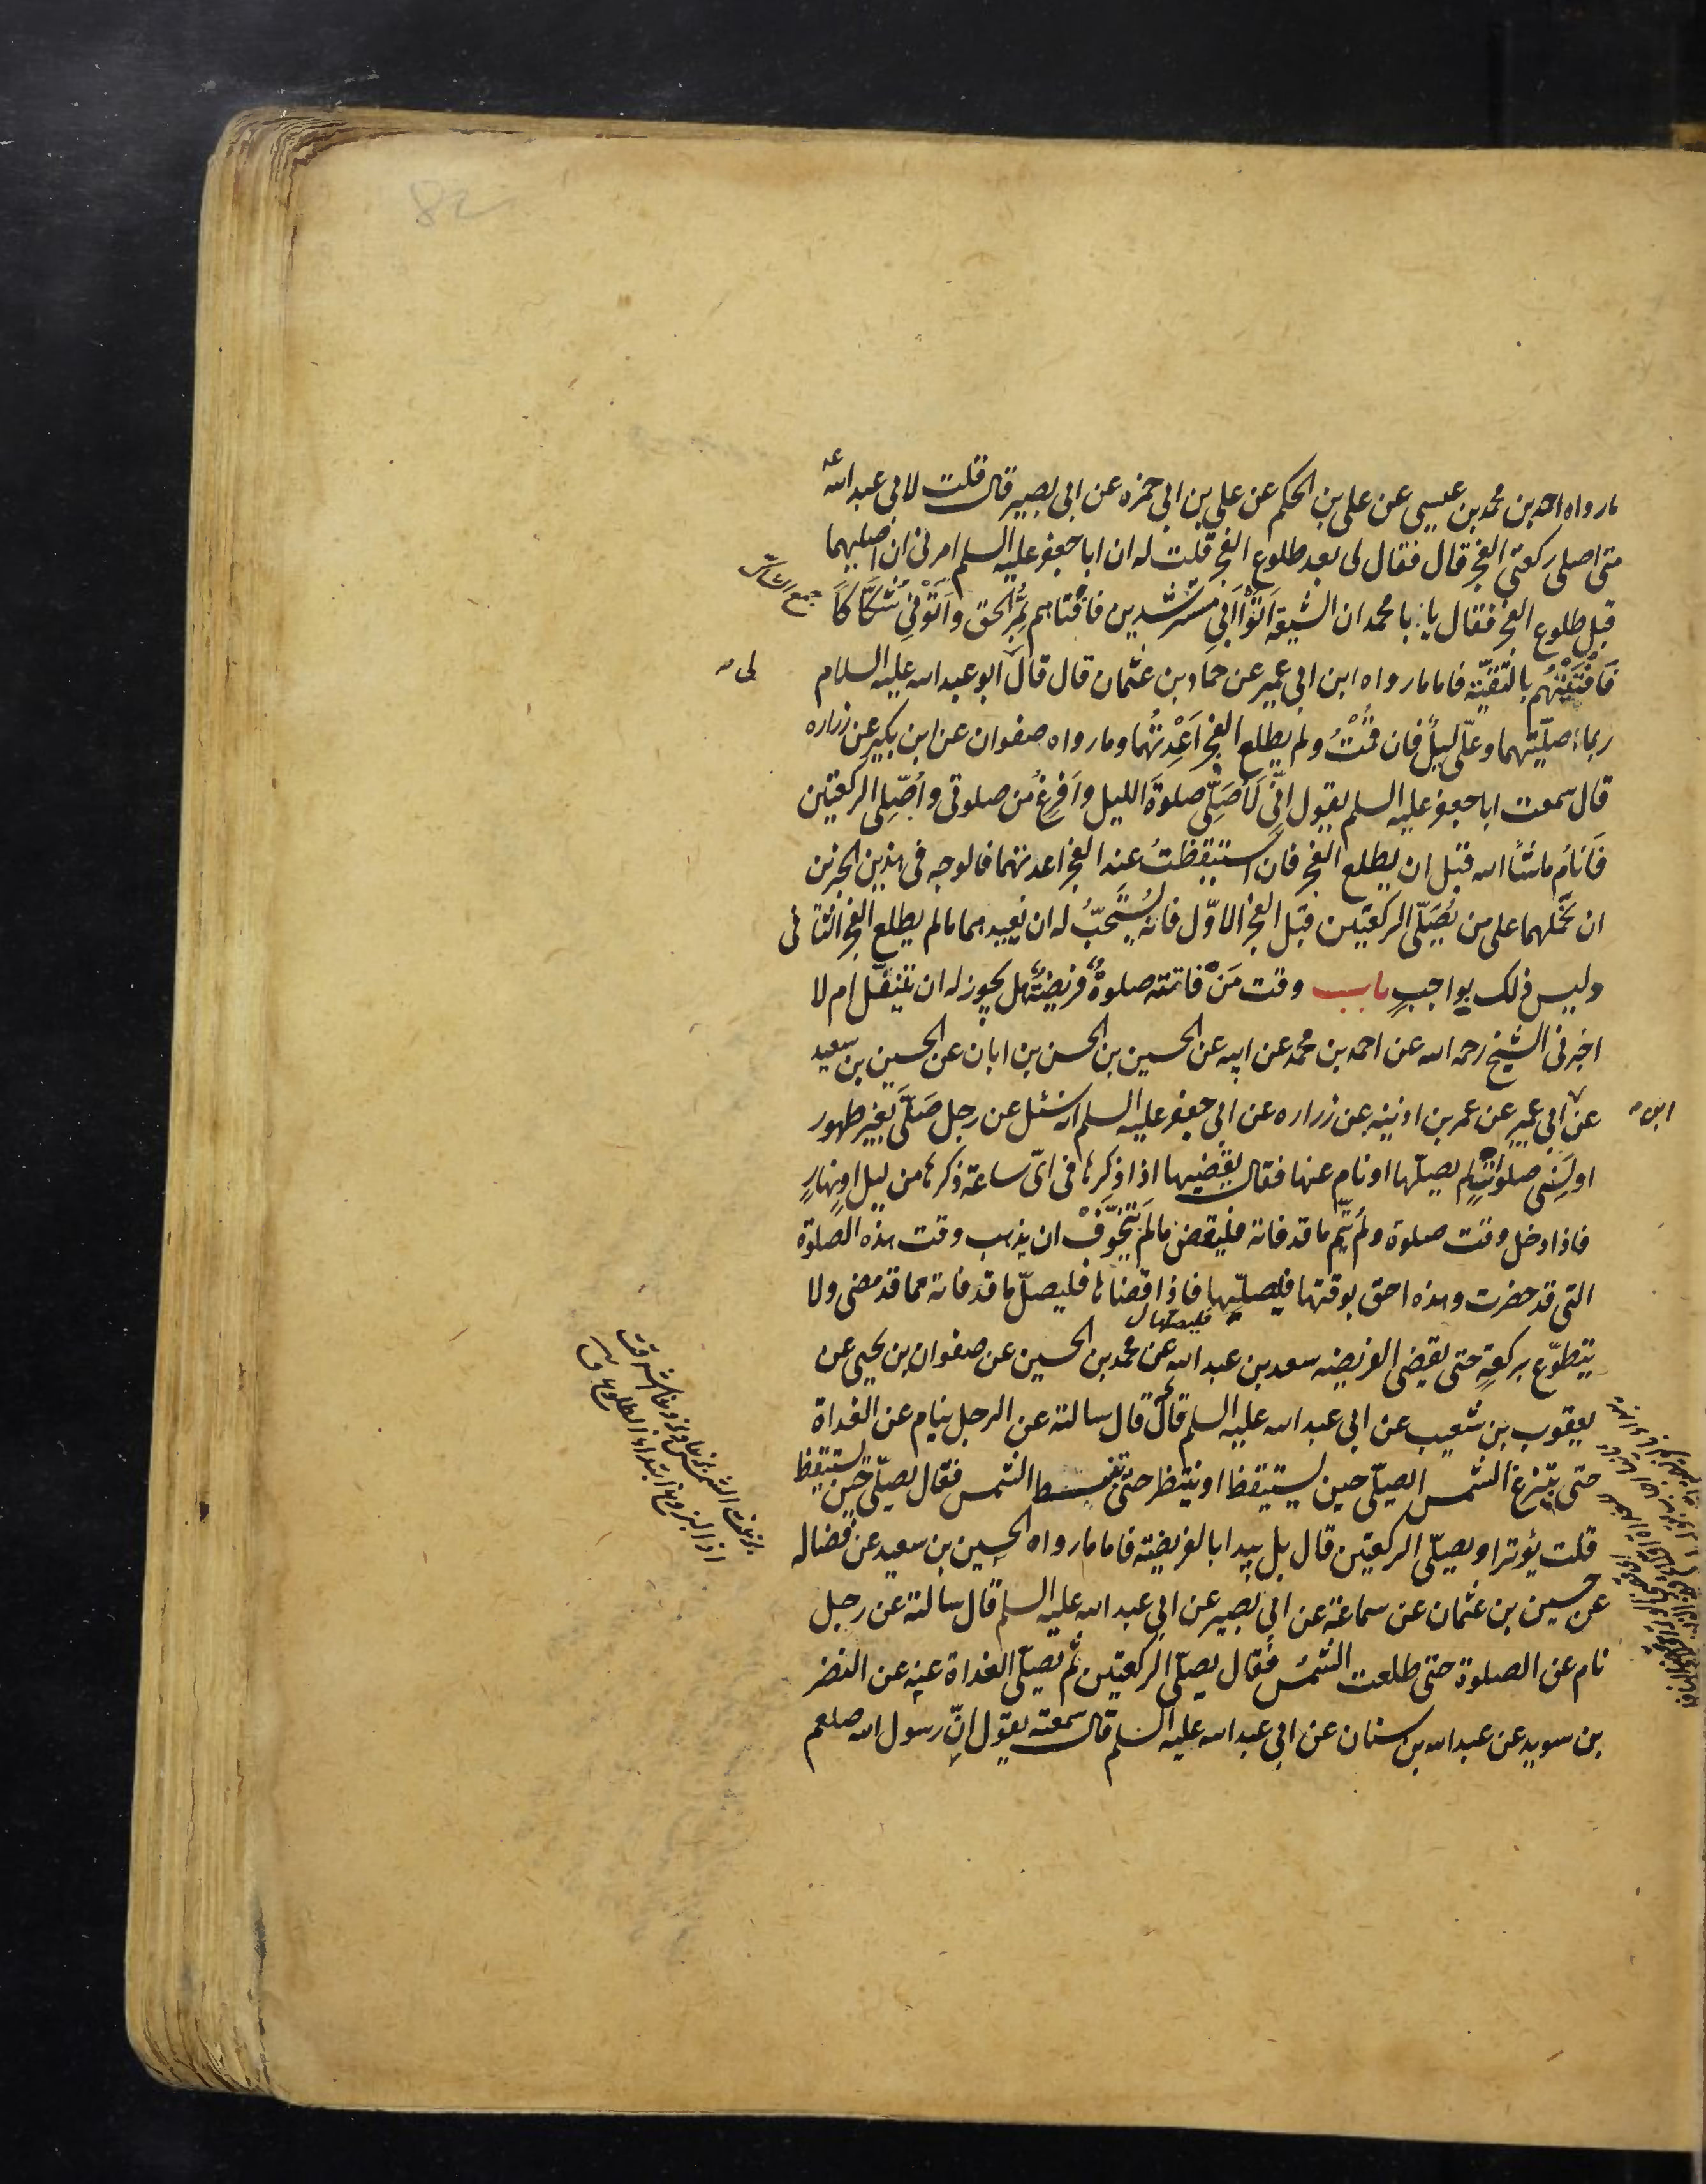 ما رواه احمد بن محمد بن عيسى عن على بن الحكم عن على بن ابى حمزه عن ابى بصير قال قلت لابى عبد الله عه
متى اصلى ركعتى الفجر قال فقال لى بعد طلوع الفجر قلت له ان ابا جعفر عليه السلم امرنى ان اصليهما
قبل طلوع الفجر فقال يا با محمد ان الشيعة اَتَوْا اَبِى مسترشدين فافتاهم بِمُرِّ الحق وَاَتَوْنِى شُكَّاكًا
جمع الشاك
فَاَفْتَيْتُهُم بالتّقيّة فاما ما رواه ابن ابى عمير عن حماد بن عثمان قال قال ابو عبد الله عليه السلام
لى
ربما صلّيتهما وعلّى ليلٌ فان قُمْتُ ولم يطلع الفجر اَعَدْتُهُما وما رواه صفوان عن ابن بكير عن زراره
قال سمعت ابا جعفر عليه السلم يقول انِّى لَاُصَلِّى صلوةَ الليل واَفرغُ من صلوتى واُصَلِّى الركعتين
فَاَنَامُ ماشأ الله قبل ان يطلع الفجر فان استيقظتُ عند الفجر اعدتهما فالوجه فى هذين الخبرين
ان نحملهما على من يُصَلّى الركعتين قبل الفجر الاوّل فانه يُستَحَبُّ له ان يعيدهما ما لم يطلع الفجر الثانى
وليس ذلك بواجبٍ باب وقت مَنْ فاتته صلوةٌ فريضةٌ هل يجوز له ان يتنفّل ام لا
اخبرنى الشيخ رحمه الله عن احمد بن محمد عن ابيه عن الحسين بن الحسن بن ابان عن الحسين بن سعيد
عن ابى عمير عن عمر بن اذينه عن زراره عن ابى جعفر عليه السلم انه سئل عن رجل صَلَّى بغير طهور
ابن
او نَسِىَ صلوات لم يصلّها او نام عنها فقال يقضيها اذا ذكرها فى اىّ ساعة ذكرها من ليل او نهارٍ
فاذا دخل وقت صلوة ولم يُتِمّ ما قد فاته فليقض ما لم يَتَخَوَّفْ ان يذهب وقت هذه الصلوة
التى قد حضرت وهذه احق بوقتها فليصلّيها فاذا قضاها فليصلّ ما قد فاته مما قد مضى ولا
فليصلها ل
يتطوّع بركعةٍ حتى يقضى الفريضه سعد بن عبد الله عن محمد بن الحسين عن صفوان بن يحيى عن
يعقوب بن شعيب عن ابى عبد الله عليه السلم قال قال سالته عن الرجل ينام عن الغداة
حتى تبزغ الشمس ايصلّى حين يستيقظ او ينتظر حتى تنبسط الشمس فقال يصلّى حين يستيقظ
قلت يؤتر او يصلّى الركعتين قال بل يبدا بالفريضة فاما ما رواه الحسين بن سعيد عن فضاله
عن حسين بن عثمان عن سماعة عن ابى بصير عن ابى عبد الله عليه السلم قال سالته عن رجل
نام عن الصلوة حتى طلعت الشمسُ فقال يصلّى الركعتين ثم يصلّى الغداة عنه عن النضر
بن سويد عن عبد الله بن سنان عن ابى عبد الله عليه السلم قال سمعته يقول انِّ رسول الله صلعم
بزغت الشمس بزغا وبزوغا شرقت
او البزوغ ابتداء الطلوع ق
82